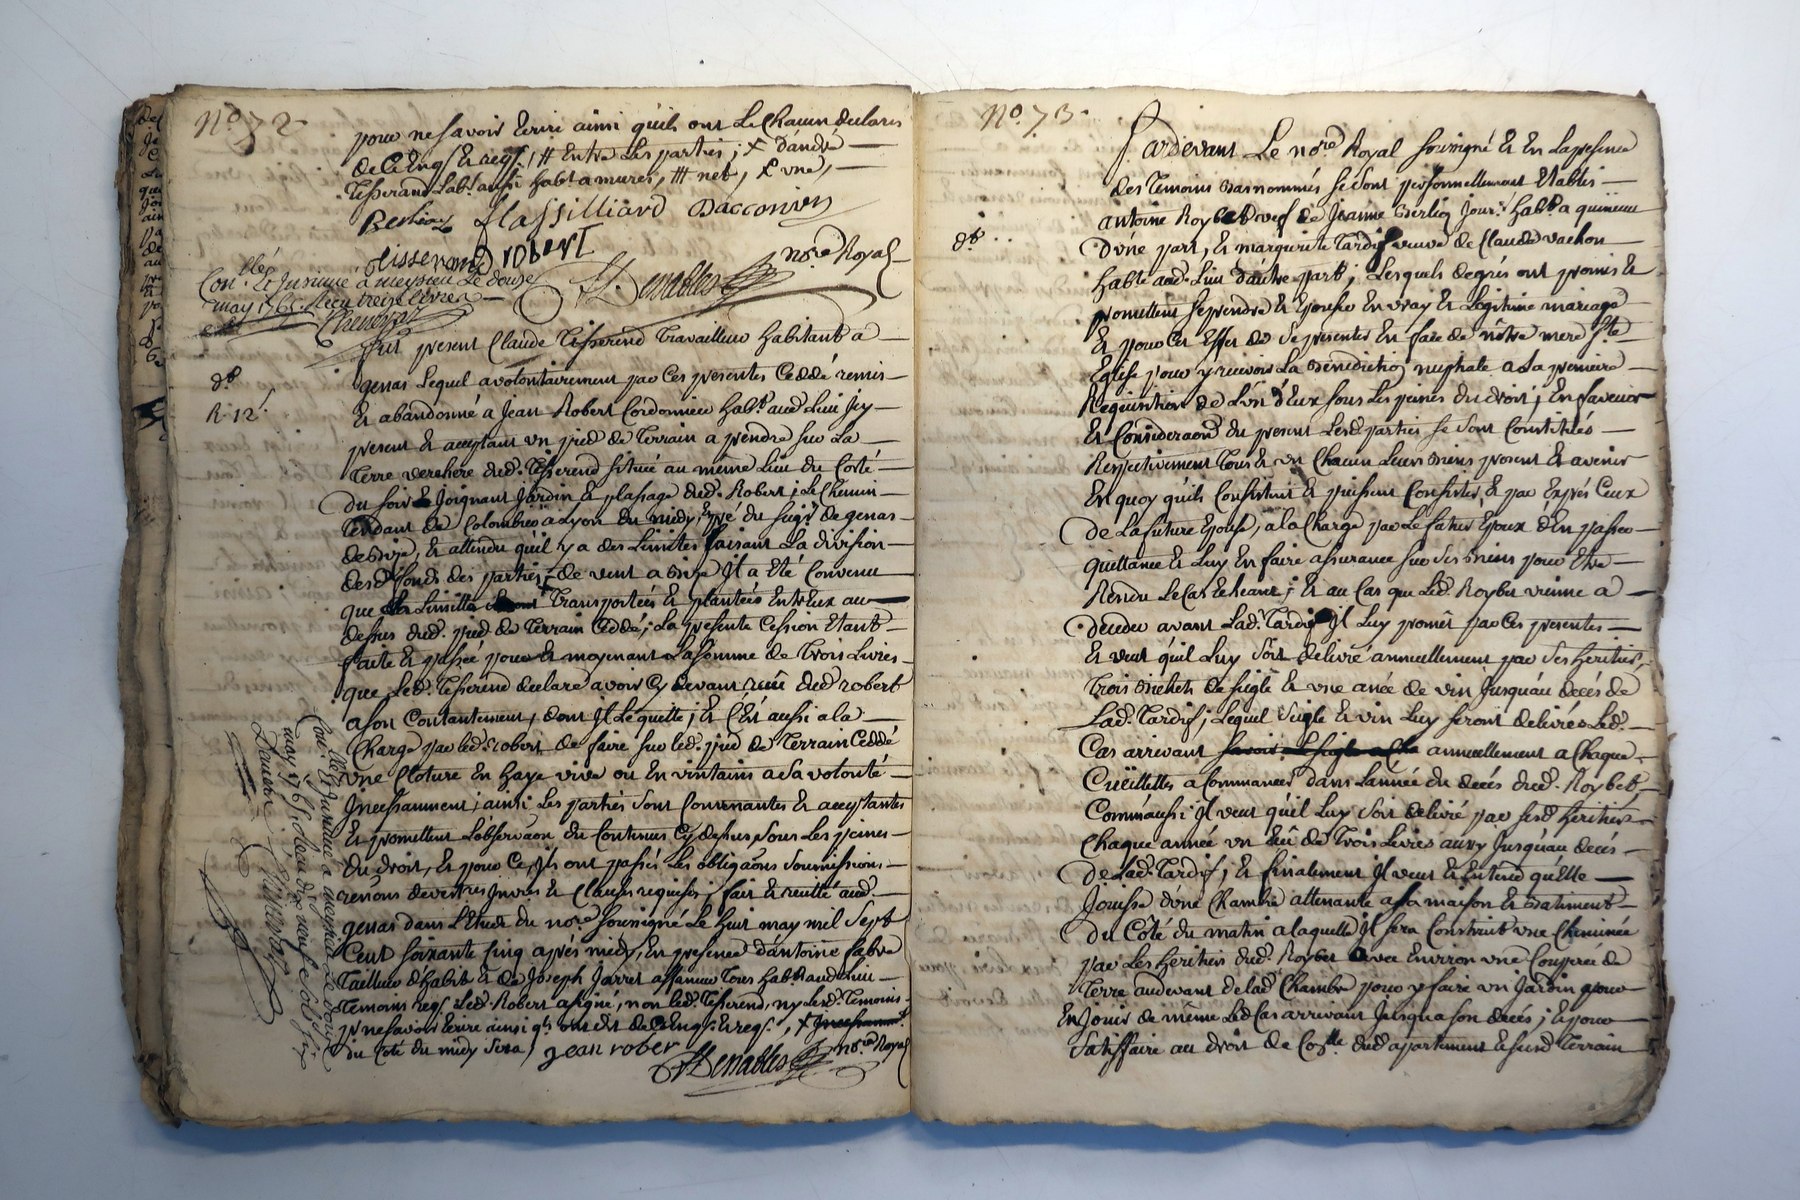 No. 72
pour ne savoir Ecrire ainsi quils ont Le Chacun declaré
de Ce Enqs Et reqs. /# Entre Les parties ; + d'andré
Tisserand Labr. aussi habt. a mures, ### net, + vne,
flassilliard Dacconin
tisserand robert
nore. Royal
Conlé. Et Insinué à meysieu Le douze
may 1765. Reçu treize livres
Chenevas
Benables
Fut present Claude Tisserend Travailleur habitant a
genas Lequel a volontairement par Ces presentes Ceddé remis
R. 12s.
Et abandonné a Jean Robert Cordonnier habt. aud. Lieu Icy
present Et acceptant vn pied de Terrain a prendre sur La
Terre verchere dud. Tisserend située au même Lieu du Costé
du soir Joignant Jardin Et plassage dud. Robert ; Le Chemin
Tendant de Colombier a Lyon du midy, du seigr. de genas
de bize, Et attendu quil y a des Limites faisant La division
desd. fonds des parties, de vent a bize Il a été Convenu
que Limittes Transportées Et plantées Entreux au
dessus dud. pied de Terrain Ceddé ; La presente Cession Etant
faite Et passée pour Et moyenant La somme de Trois Livres
que Led. Tisserend declare avoir Cy devant reçu dud. robert
a son Contantement, dont Il Le quitte ; Et C'est aussi a la
Charge par led. robert de faire sur led. pied de Terrain Ceddé
vne Cloture En haye vive ou En vintains a sa volonté
Incessament ; ainsi Les parties sont Convenantes Et acceptantes
Et promettent L'observaon du Contenu Cy dessus, sous Les peines
du droit, Et pour Ce, Ils ont passés Les obligaons soumissions
renons devestres Invres Et Clauses requises ; fait Et recitté aud.
genas dans L'Etude du nore. soussigné Le huit may mil sept
Cent soixante Cinq après midy, En presence d'antoine fabre
Tailleur d'habit Et de Joseph Jarret affaneur Tous habts. aud. Lieu
Temoins reqs. Led. Robert a signé, non led. Tisserend, ny Lesd. Temoins
pr ne savoir Ecrire ainsi qls ont dit de Ce Enqs. Et reqs., + Incessament
du Coté du midy sera / jean rober
Benables nore. Royal
Conlé. Et Insinué a meysieu Le douze
may 1765. Reçu dix neuf sols six
Chenevas
No. 73
Pardevant Le nore. Royal soussigné Et En La presence
des Temoins bas nommés se sont personnellement Etablis
antoine Roybet veuf de Jeanne Berlioz Jourr. habt. a quineieu
d'une part, Et marguerite Tardif veuve de Claude vachon
habte. aud. Lieu d'autre part ; Lesquels de grés ont promis Et
promettent se prendre Et Epouser En vray Et Légitime mariage
Et pour Cet Effet de se presenter En face de nôtre mere Ste
Eglise pour y recevoir La Bénédiction nuptiale a La premiere
Requisition de L'un d'Eux sous Les peines du droit ; En faveur
Et Consideraon du present Lesd. parties se sont Constitués
Respectivement Tous Et vn Chacun Leurs biens present Et avenir
En quoy quils Consistent Et puissent Consister, Et par Exprés Ceux
de La future Epouse, a la Charge par Le futur Epoux d'En passer
quittance Et Luy En faire assurance sur ses biens pour Etre
Rendu Le Cas Echeant ; Et au Cas que Led. Roybet vienne a
deceder avant Lad. Tardif Il Luy promet par Ces presentes
Et veut qu'il Luy soit delivré annuellement par ses heritiers
Trois bichets de seigle Et vne anée de vin Jusqu'au decés de
Lad. Tardif ; Lequel seigle Et vin Luy seront delivrés Led.
Cas arrivant annuellement a Chaque
Cueillettes a Commancer dans L'année du decés dud. Roybet,
Comm'aussi Il veut qu'il Luy soit delivré par sesd. heritiers
Chaque année vn Ecû de Trois Livres aussy Jusqu'au decés
de Lad. Tardif ; Et finalement Il veut Et Entend qu'Elle
Jouisse d'vne Chambre attenante a sa maison Et batiment
du Côté du matin a laquelle Il sera Construit vne Cheminée
par Les heritiers dud. Roybet avec Environ vne Couppée de
Terre audevant de lad. Chambre pour y faire vn Jardin pour
En Jouir de même Led. Cas arrivant Jusqu'a son decés ; Et pour
satisfaire au droit de Conlle dud. appartement Et susd. Terrain